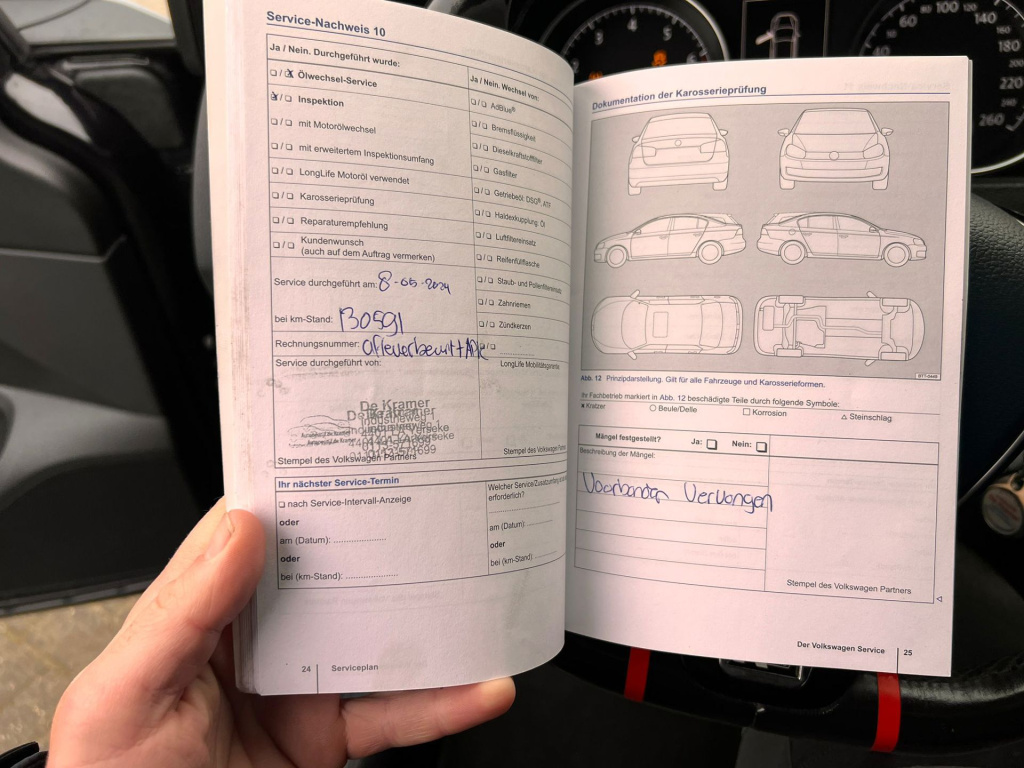 Service-Nachweis 10
Ja / Nein. Durchgeführt wurde:
Ölwechsel-Service
Inspektion
mit Motorölwechsel
mit erweitertem Inspektionsumfang
LongLife Motoröl verwendet
Karosserieprüfung
Reparaturempfehlung
Kundenwunsch
(auch auf dem Auftrag vermerken)
Ja / Nein. Wechsel von:
AdBlue®
Bremsflüssigkeit
Dieselkraftstofffilter
Gasfilter
Getriebeöl: DSG®, ATF
Haldexkupplung: Öl
Luftfiltereinsatz
Reifenfüllflasche
Staub- und Pollenfiltereinsatz
Zahnriemen
Zündkerzen
Service durchgeführt am: 8-05-2024
bei km-Stand: 130591
Rechnungsnummer: afleverbeurt + APK
Service durchgeführt von:
LongLife Mobilitätsgarantie
De Kramer
Industrieweg
Stempel des Volkswagen Partners
Stempel des Volkswagen Partners
Ihr nächster Service-Termin
nach Service-Intervall-Anzeige
oder
am (Datum):
oder
bei (km-Stand):
Welcher Service/Zusatzumfang
erforderlich?
am (Datum):
oder
bei (km-Stand)
24 Serviceplan
Dokumentation der Karosserieprüfung
Abb. 12 Prinzipdarstellung. Gilt für alle Fahrzeuge und Karosserieformen.
Ihr Fachbetrieb markiert in Abb. 12 beschädigte Teile durch folgende Symbole:
Kratzer
Beule/Delle
Korrosion
Steinschlag
Mängel festgestellt? Ja: Nein:
Beschreibung der Mängel:
Voorbanden Vervangen
Stempel des Volkswagen Partners
Der Volkswagen Service 25
3 4 5 6
40 60 80 100 120 140
180
200
220
260